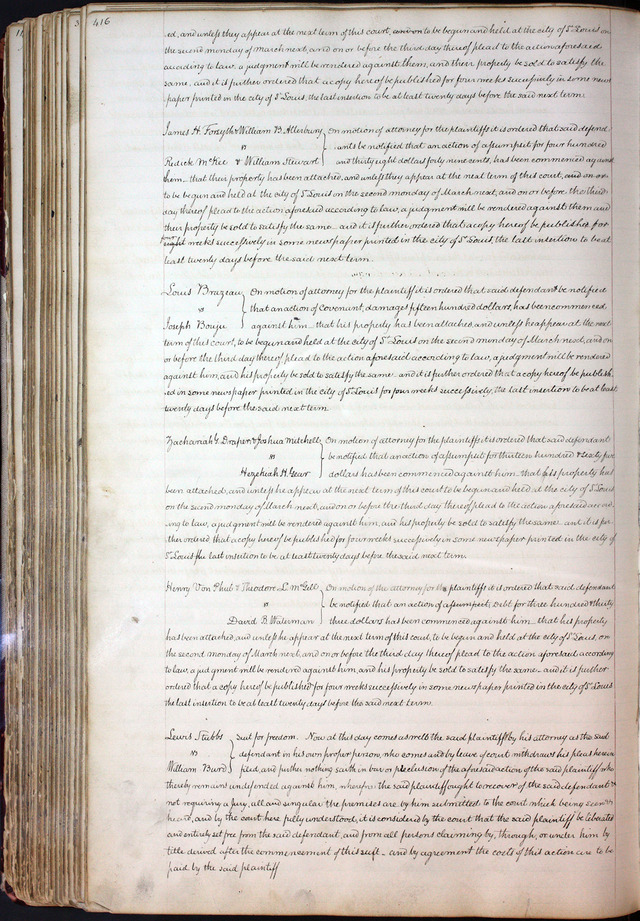 416
ed, and unless they appear at the next term of this court, and on to be begun and held at the city of St Louis on
the second monday of march next, and on or before the third day thereof plead to the action aforesaid
according to law, a judgment will be rendered against them, and their property be sold to satisfy the
same, and it is further ordered that a copy hereof be published for four weeks successively in some news
paper printed in the city of St Louis, the last insertion to be at least twenty days before the said next term.
James H. Forsyth & William B. Atterbury On motion of attorney for the plaintiffs it is ordered that said defend
vs ants be notified that an action of assumpsit for four hundred
Redick McKee & William Stewart and thirty eight dollars forty nine cents, has been commenced against
them, that their property has been attached, and unless they appear at the next term of this court, and on or
to be begun and held at the city of St Louis on the second monday of March next, and on or before the third
day thereof plead to the action aforesaid according to law, a judgment will be rendered against them and
their property be sold to satisfy the same and it is further ordered that a copy hereof be published for
eight weeks successively in some newspaper printed in the city of St Louis, the last insertion to be at
least twenty days before the said next term
Louis Brazeau On motion of attorney for the plaintiff it is ordered that said defendant be notified
vs that an action of covenant, damages fifteen hundred dollars, has been commenced
Joseph Bouju against him that his property has been attached, and unless he appear at the next
term of this court, to be begun and held at the city of St Louis on the second monday of March next, and on
or before the third day thereof plead to the action aforesaid according to law, a judgment will be rendered
against him, and his property be sold to satisfy the same and it is further ordered that a copy hereof be publish
ed in some newspaper printed in the city of St Louis for four weeks successively, the last insertion to be at least
twenty days before the said next term
Zachariah G. Draper & Joshua Mitchell On motion of attorney for the plaintiffs it is ordered that said defendant
vs be notified that an action of assumpsit for thirteen hundred & sixty five
Hezekiah H. Gear dollars has been commenced against him that his property has
been attached, and unless he appear at the next term of this court to be begun and held at the city of St Louis
on the second monday of March next, and on or before the third day thereof plead to the action aforesaid accord
ing to law, a judgment will be rendered against him, and his property be sold to satisfy the same and it is fur
ther ordered that a copy hereof be published for four weeks successively in some newspaper printed in the city of
St Louis the last insertion to be at least twenty days before the said next term.
Henry Von Phul & Theodore L. McGill On motion of the attorney for the plaintiffs it is ordered that said defendant
vs be notified that an action of assumpsit, Debt for three hundred & thirty
David B. Waterman three dollars has been commenced against him that his property
has been attached, and unless he appear at the next term of this court, to be begun and held at the city of St Louis, on
the second monday of March next, and on or before the third day thereof plead to the action aforesaid according
to law, a judgment will be rendered against him, and his property be sold to satisfy the same and it is further
ordered that a copy hereof be published for four weeks successively in some newspaper printed in the city of St Louis
the last insertion to be at least twenty days before the said next term.
Lewis Stubbs Suit for freedom. Now at this day comes as well the said plaintiff by his attorney as the said
vs defendant in his own proper person, who comes and by leave of court withdraws his pleas herein
William Burd filed, and further nothing saith in bar or preclusion of the aforesaid action of the said plaintiff who
thereby remains undefended against him, wherefore the said plaintiff ought to recover of the said defendant &
not requiring a jury, all and singular the premises are by him submitted to the court which being seen &
heard, and by the court here fully understood, it is considered by the court that the said plaintiff be liberated
and entirely set free from the said defendant, and from all persons claiming by, through, or under him by
title derived after the commencement of this suit and by agreement the costs of this action are to be
paid by the said plaintiff